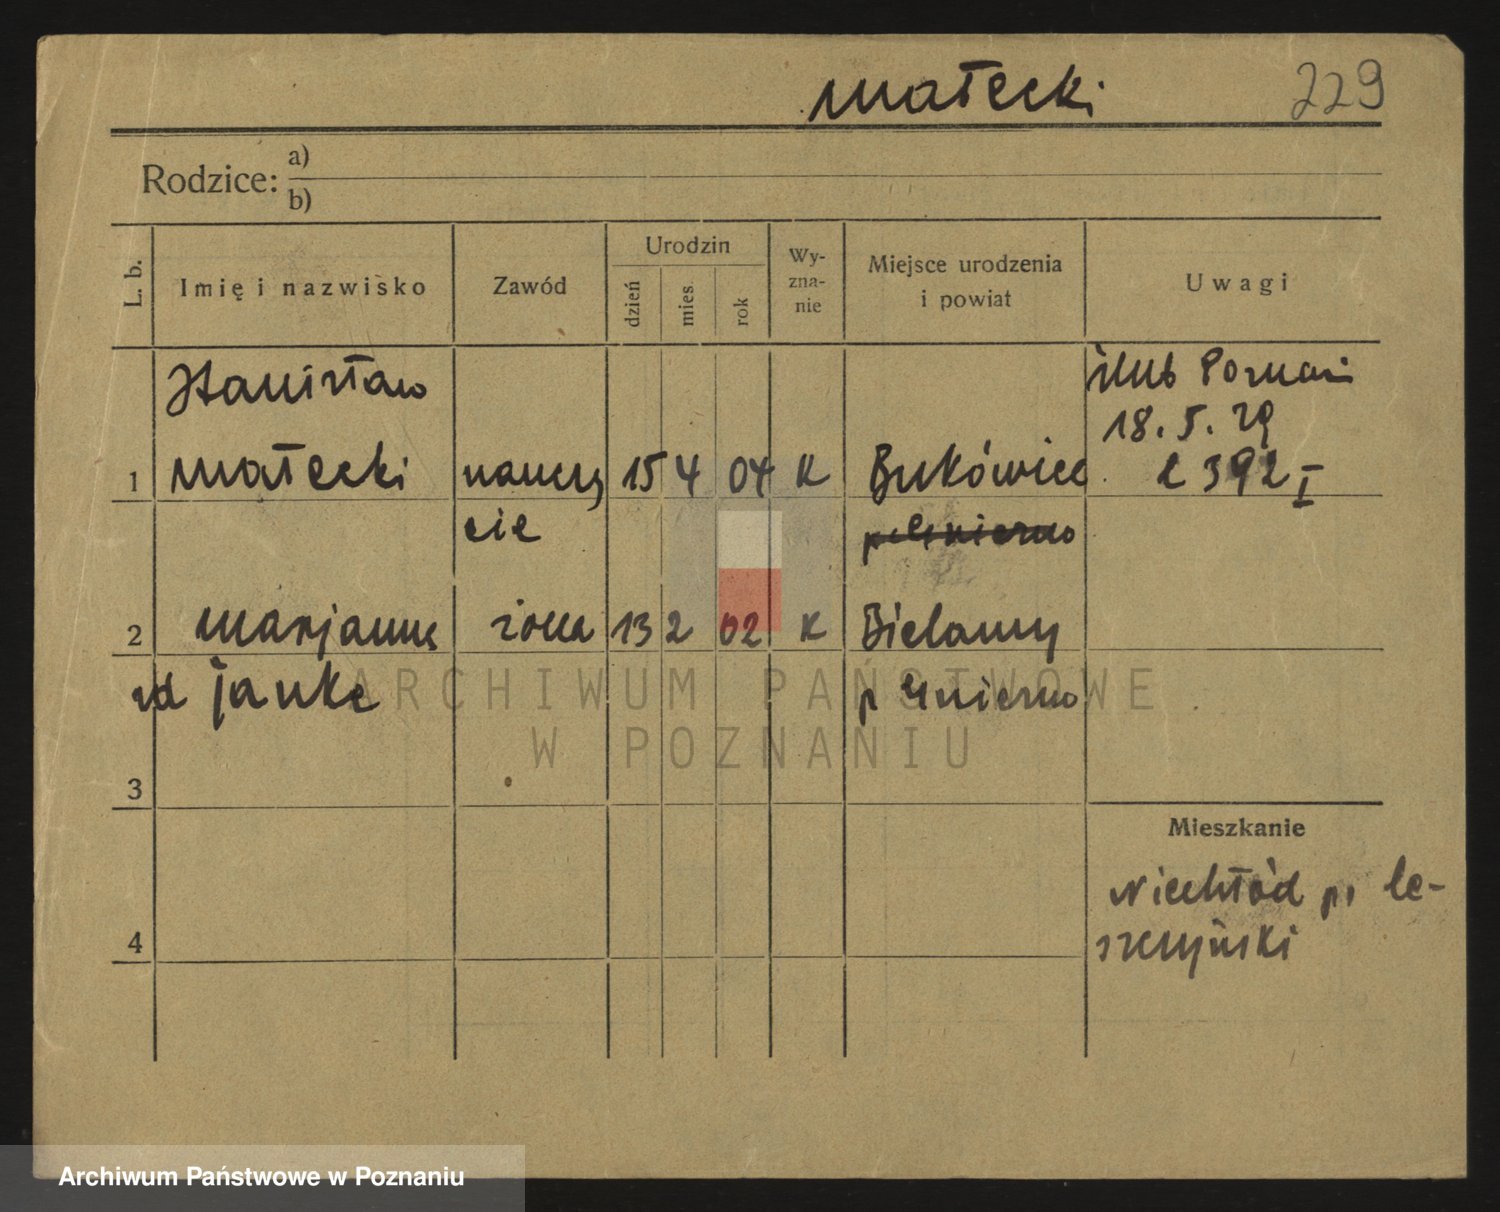 Małecki 229
Rodzice: a)
b)
L. b. Imię i nazwisko Zawód Urodzin dzień mies. rok Wy-zna-nie Miejsce urodzenia i powiat Uwagi
Stanisław ślub Poznań
18.5.29
1 Małecki nauczy 15 4 04 K Bukówiec L 392 I
ciel
2 Marjanna żona 13 2 02 K Bielawy
zd Janke p Gniezno
ARCHIWUM PAŃSTWOWE
W POZNANIU
3
Mieszkanie
Niechłód p. le-
szczyński
4
Archiwum Państwowe w Poznaniu